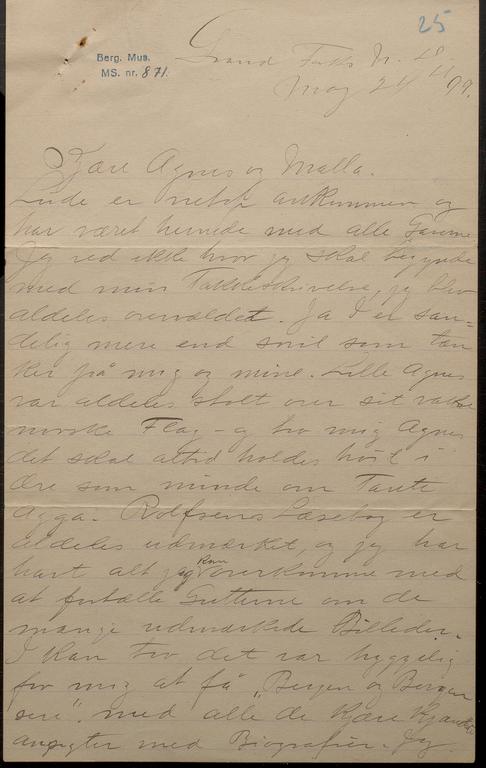 25
Berg. Mus.
MS. nr. 871.
Grand Forks N. D.
May 24 99.
Kjære Agnes og Malla.
Lude er netop ankommen og
har været hernede med alle Gaverne
Jeg ved ikke hvor jeg skal begynde
med min Takkeskrivelse, jeg blev
aldeles overvældet. Ja I er san-
delig mere end snil som tæn
ker på mig og mine. Lille Agnes
var aldeles stolt over sit vakre
norske Flag – og tro mig Agnes
det skal altid holdes høit i
Ære som minde om Tante
Agga. Rolfsens Læsebog er
aldeles udmærket, og jeg har
havt alt jeg kan overkomme med
at fortælle Gutterne om de
mange udmærkede Billeder.
I kan tro det var hyggelig
for mig at få „Bergen og Bergen
sere". med alle de kjære kjendte
ansigter med Biografier. Jeg